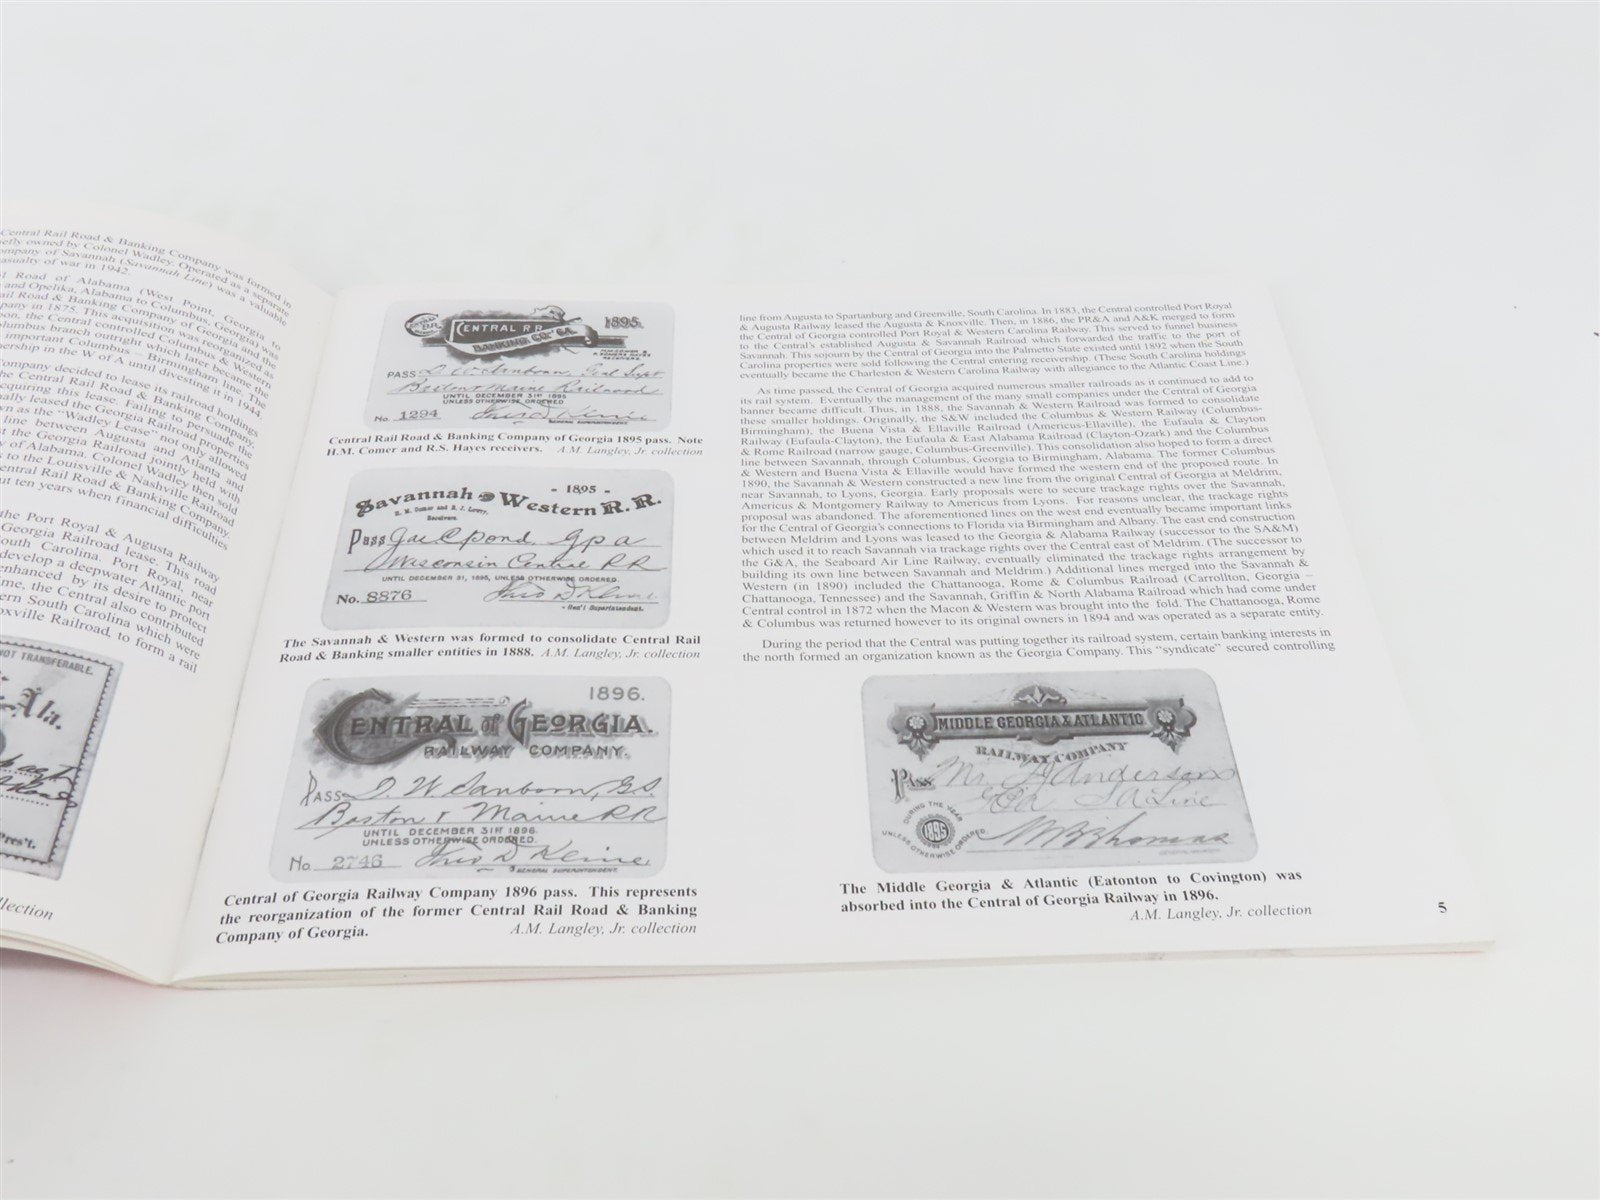 Central Rail Road & Banking Company was formed in
owned by Colonel Wadley. Operated as a separate
ompany of Savannah (Savannah Line) was a valuable
asualty of war in 1942.
Road of Alabama (West Point, Georgia to
and Opelika, Alabama to Columbus, Georgia) was
ail Road & Banking Company of Georgia and the
pany in 1875. This acquisition was reorganized as
on, the Central controlled Columbus & Western
lumbus branch outright which later became the
important Columbus – Birmingham line. The
ership in the W of A until divesting it in 1944.
ompany decided to lease its railroad holdings
he Central Rail Road & Banking Company,
cquiring this lease. Failing to persuade the
ally leased the Georgia Railroad properties
wn as the "Wadley Lease" not only allowed
line between Augusta and Atlanta, and
t the Georgia Railroad jointly held with
y of Alabama. Colonel Wadley then sold
s to the Louisville & Nashville Railroad
entral Rail Road & Banking Company.
ut ten years when financial difficulties
the Port Royal & Augusta Railway
Georgia Railroad lease. This road
outh Carolina. Port Royal, near
develop a deepwater Atlantic port
enhanced by its desire to protect
ime, the Central also contributed
ern South Carolina which were
oxville Railroad, to form a rail
NOT TRANSFERABLE.
Ala.
Pres't.
llection
CENTRAL R.R.
BANKING CO. OF GA.
1895.
H.M. COMER &
R. SOMERS HAYES
RECEIVERS.
PASS D. W. Sanborn, Genl Supt
Boston & Maine Railroad
UNTIL DECEMBER 31ST 1895
UNLESS OTHERWISE ORDERED
No. 1294 Theo D. Kline
GENERAL SUPERINTENDENT.
Central Rail Road & Banking Company of Georgia 1895 pass. Note
H.M. Comer and R.S. Hayes receivers. A.M. Langley, Jr. collection
- 1895 -
Savannah and Western R. R.
H. M. Comer and R. J. Lowry,
Receivers.
Pass Jas C Pond, G p a
Wisconsin Central RR
UNTIL DECEMBER 31, 1895, UNLESS OTHERWISE ORDERED.
No. 8876 Theo D Kline
Gen'l Superintendent.
The Savannah & Western was formed to consolidate Central Rail
Road & Banking smaller entities in 1888. A.M. Langley, Jr. collection
1896.
CENTRAL OF GEORGIA
RAILWAY COMPANY.
PASS D. W Sanborn, G.S.
Boston & Maine RR
UNTIL DECEMBER 31ST 1896.
UNLESS OTHERWISE ORDERED.
No. 2746 Theo D. Kline
GENERAL SUPERINTENDENT.
Central of Georgia Railway Company 1896 pass. This represents
the reorganization of the former Central Rail Road & Banking
Company of Georgia. A.M. Langley, Jr. collection
line from Augusta to Spartanburg and Greenville, South Carolina. In 1883, the Central controlled Port Royal
& Augusta Railway leased the Augusta & Knoxville. Then, in 1886, the PR&A and A&K merged to form
the Central of Georgia controlled Port Royal & Western Carolina Railway. This served to funnel business
to the Central's established Augusta & Savannah Railroad which forwarded the traffic to the port of
Savannah. This sojourn by the Central of Georgia into the Palmetto State existed until 1892 when the South
Carolina properties were sold following the Central entering receivership. (These South Carolina holdings
eventually became the Charleston & Western Carolina Railway with allegiance to the Atlantic Coast Line.)
As time passed, the Central of Georgia acquired numerous smaller railroads as it continued to add to
its rail system. Eventually the management of the many small companies under the Central of Georgia
banner became difficult. Thus, in 1888, the Savannah & Western Railroad was formed to consolidate
these smaller holdings. Originally, the S&W included the Columbus & Western Railway (Columbus-
Birmingham), the Buena Vista & Ellaville Railroad (Americus-Ellaville), the Eufaula & Clayton
Railway (Eufaula-Clayton), the Eufaula & East Alabama Railroad (Clayton-Ozark) and the Columbus
& Rome Railroad (narrow gauge, Columbus-Greenville). This consolidation also hoped to form a direct
line between Savannah, through Columbus, Georgia to Birmingham, Alabama. The former Columbus
& Western and Buena Vista & Ellaville would have formed the western end of the proposed route. In
1890, the Savannah & Western constructed a new line from the original Central of Georgia at Meldrim,
near Savannah, to Lyons, Georgia. Early proposals were to secure trackage rights over the Savannah,
Americus & Montgomery Railway to Americus from Lyons. For reasons unclear, the trackage rights
proposal was abandoned. The aforementioned lines on the west end eventually became important links
for the Central of Georgia's connections to Florida via Birmingham and Albany. The east end construction
between Meldrim and Lyons was leased to the Georgia & Alabama Railway (successor to the SA&M)
which used it to reach Savannah via trackage rights over the Central east of Meldrim. (The successor to
the G&A, the Seaboard Air Line Railway, eventually eliminated the trackage rights arrangement by
building its own line between Savannah and Meldrim.) Additional lines merged into the Savannah &
Western (in 1890) included the Chattanooga, Rome & Columbus Railroad (Carrollton, Georgia –
Chattanooga, Tennessee) and the Savannah, Griffin & North Alabama Railroad which had come under
Central control in 1872 when the Macon & Western was brought into the fold. The Chattanooga, Rome
& Columbus was returned however to its original owners in 1894 and was operated as a separate entity.
During the period that the Central was putting together its railroad system, certain banking interests in
the north formed an organization known as the Georgia Company. This "syndicate" secured controlling
MIDDLE GEORGIA & ATLANTIC
RAILWAY COMPANY
PASS Mr. Anderson
S A Line
DURING THE YEAR
1895
UNLESS OTHERWISE ORDERED.
Thomas
The Middle Georgia & Atlantic (Eatonton to Covington) was
absorbed into the Central of Georgia Railway in 1896.
A.M. Langley, Jr. collection
5